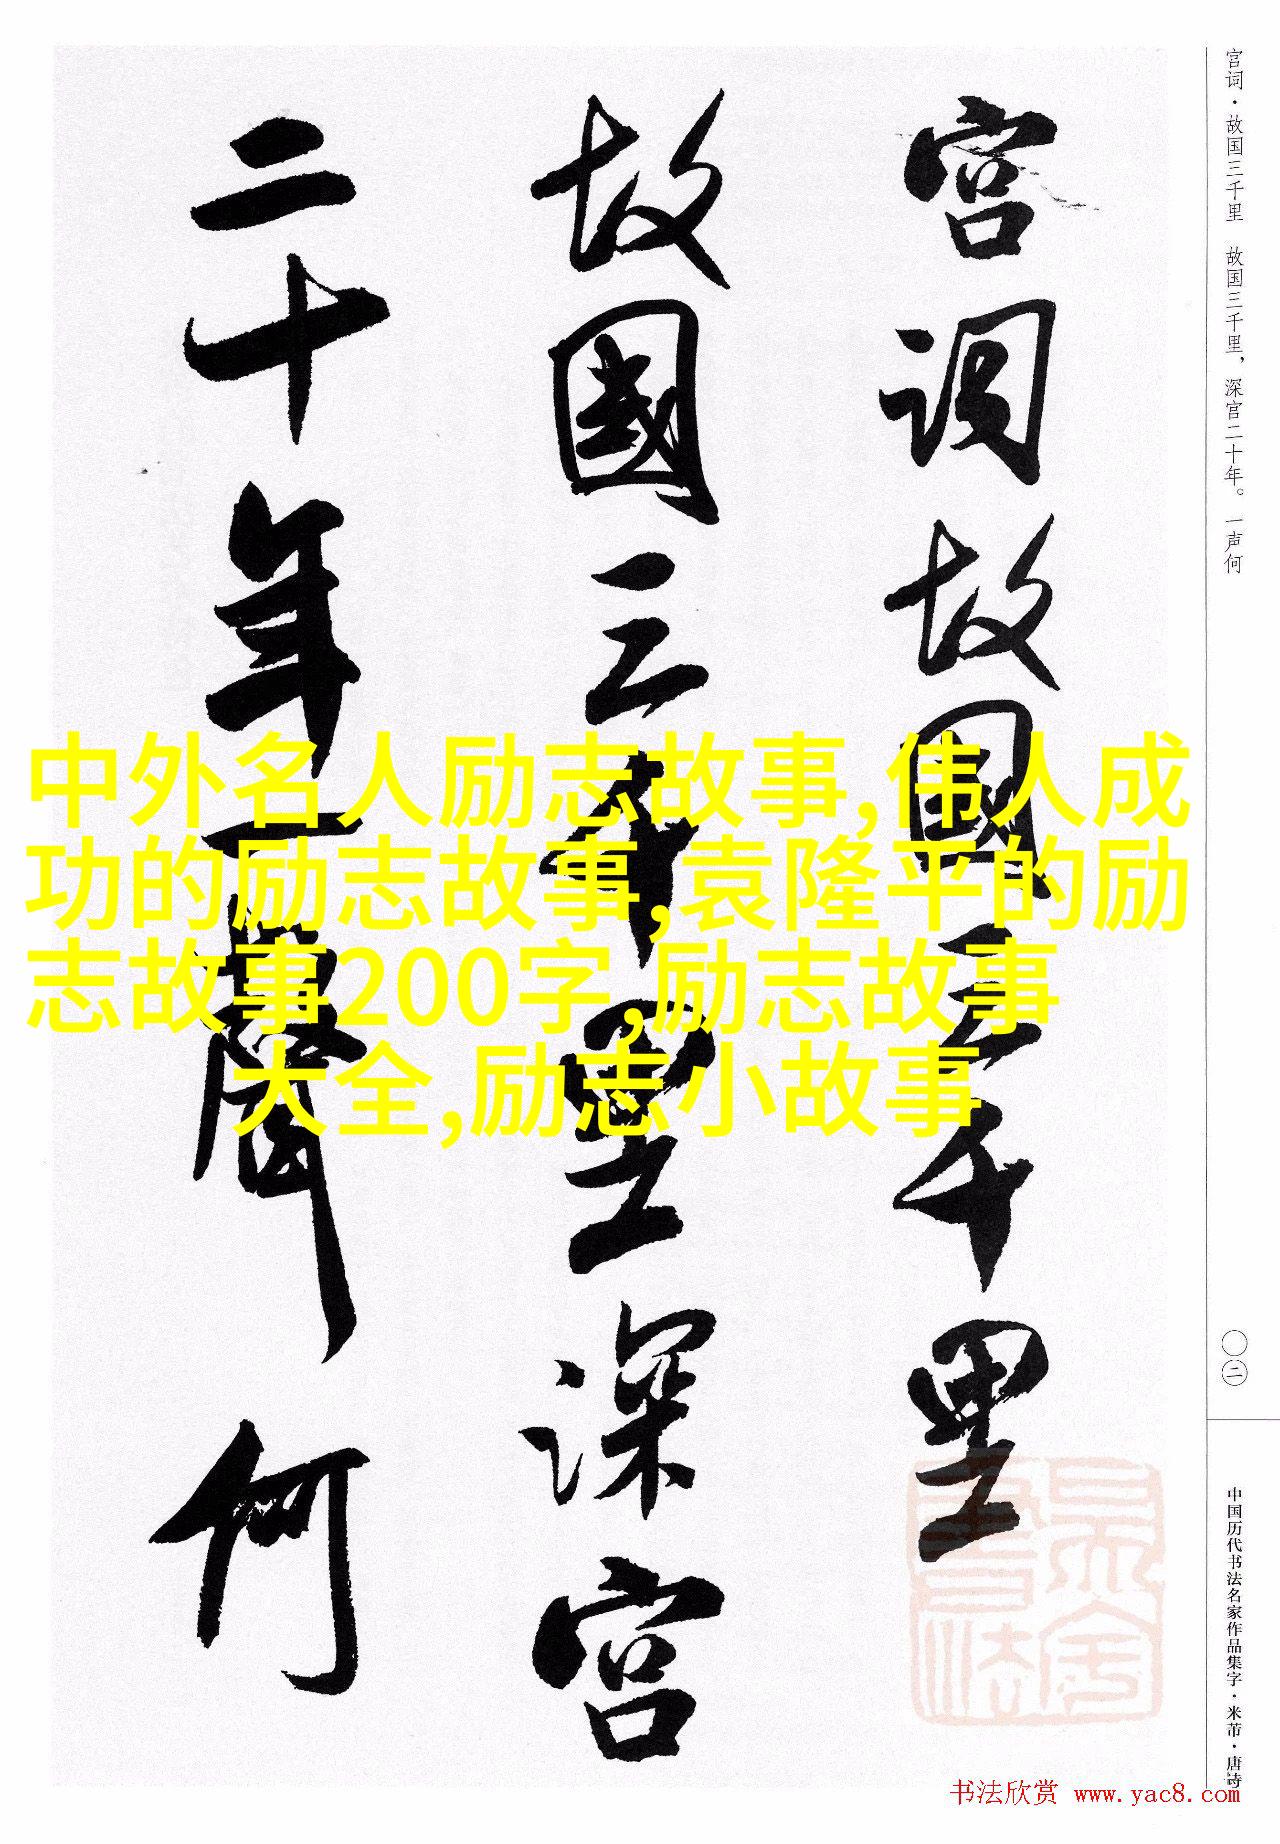 宫词·故国三千里 故国三千里，深宫二十年。一声何
宫词故国三千里
故国三千里深宫
二十年一声何
中外名人励志故事,伟人成
功的励志故事,袁隆平的励
志故事200字 ,励志故事
大全,励志小故事
〇二
中国历代书法名家作品集字·米芾·唐诗
书法欣赏 www.yac8.com